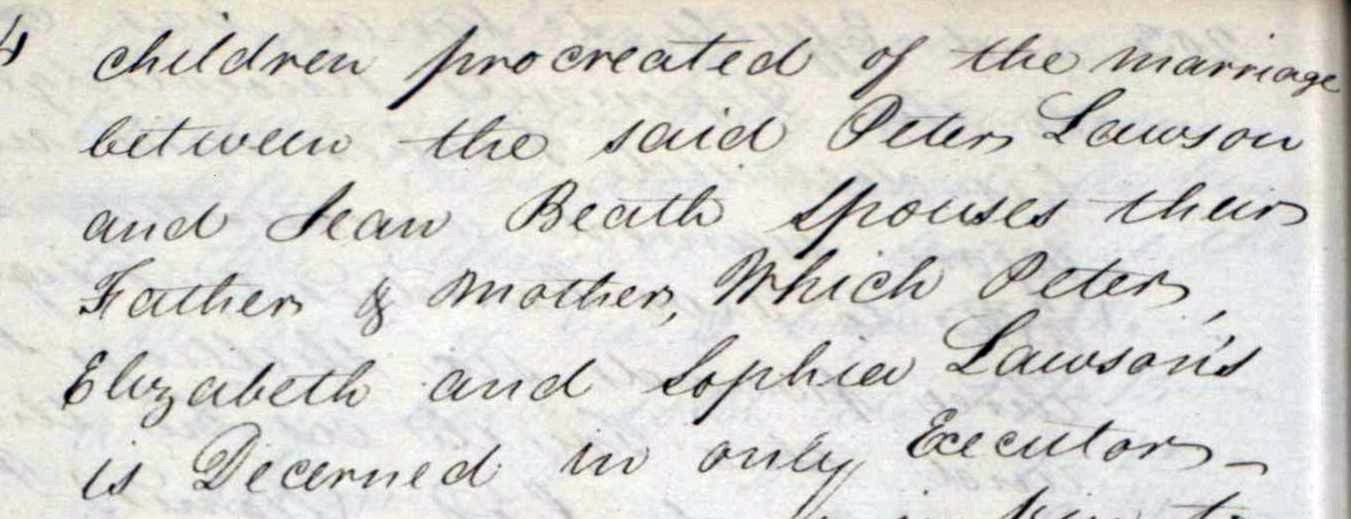 children procreated of the marriage
between the said Peter Lawson
and Jean Beath Spouses their
Father & Mother, Which Peter,
Elizabeth and Sophia Lawson's
is Decerned in only Executors